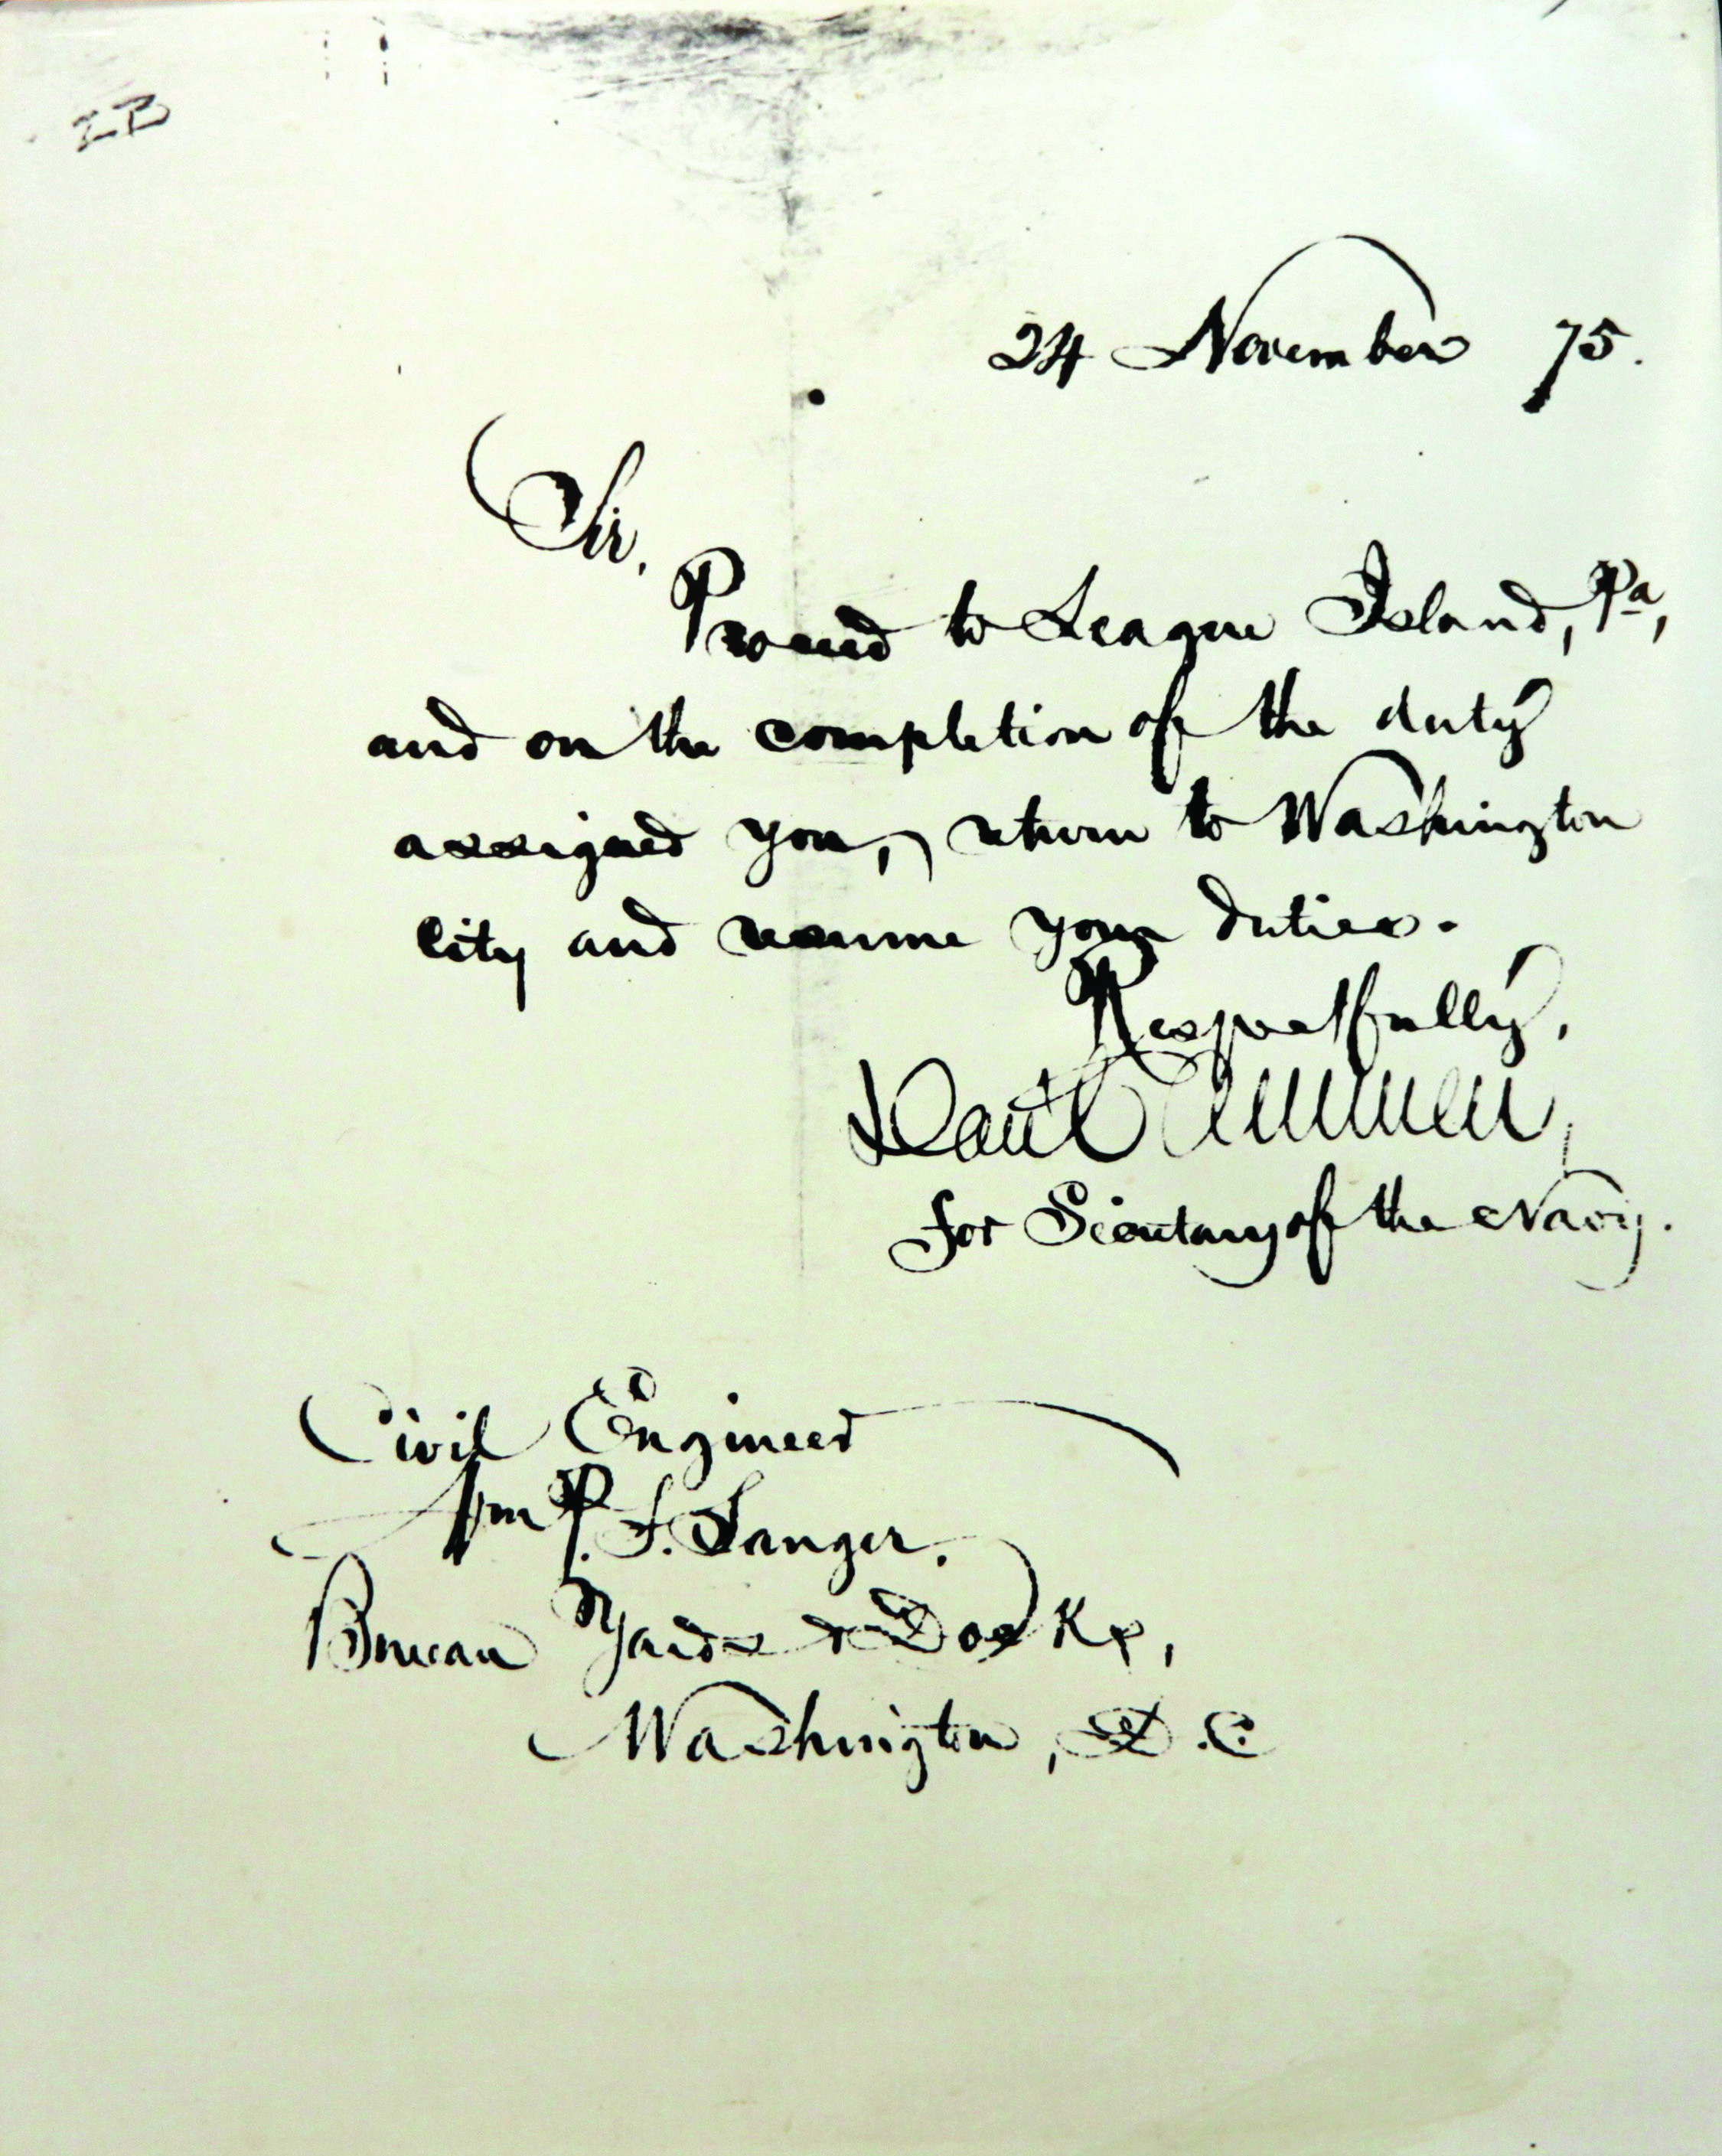 24 November 75.
Sir,
Proceed to League Island, Pa,
and on the completion of the duty
assigned you, return to Washington
City and resume your duties.
Respectfully,
Danl Ammen,
for Secretary of the Navy.
Civil Engineer
Wm P. S. Sanger.
Bureau Yards & Docks,
Washington, D.C